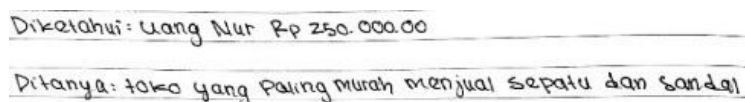 Diketahui: uang Nur Rp 250.000.00
Ditanya: toko yang paling murah menjual sepatu dan sandal